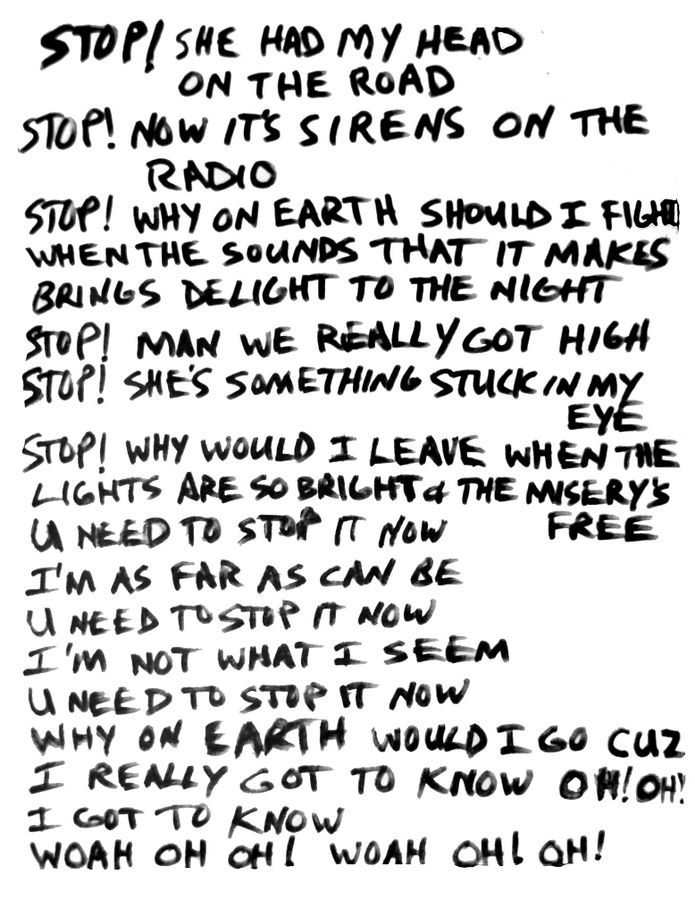 STOP! SHE HAD MY HEAD
ON THE ROAD
STOP! NOW IT'S SIRENS ON THE
RADIO
STOP! WHY ON EARTH SHOULD I FIGHT
WHEN THE SOUNDS THAT IT MAKES
BRINGS DELIGHT TO THE NIGHT
STOP! MAN WE REALLY GOT HIGH
STOP! SHE'S SOMETHING STUCK IN MY
EYE
STOP! WHY WOULD I LEAVE WHEN THE
LIGHTS ARE SO BRIGHT & THE MISERY'S
FREE
U NEED TO STOP IT NOW
I'M AS FAR AS CAN BE
U NEED TO STOP IT NOW
I'M NOT WHAT I SEEM
U NEED TO STOP IT NOW
WHY ON EARTH WOULD I GO CUZ
I REALLY GOT TO KNOW OH! OH!
I GOT TO KNOW
WOAH OH OH! WOAH OH! OH!